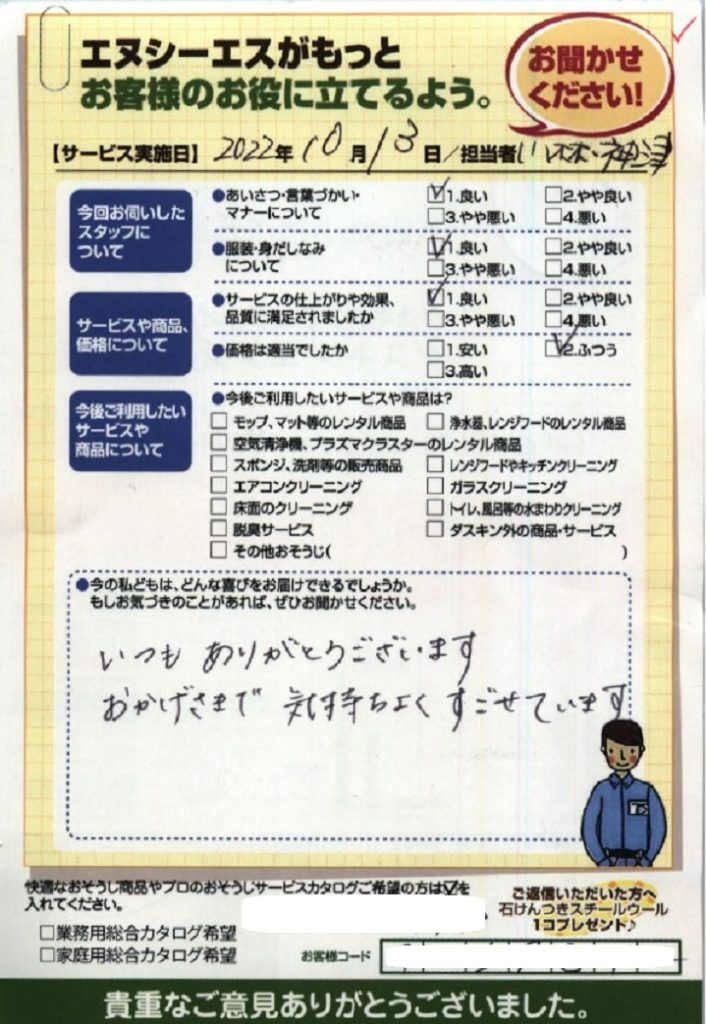 エヌシーエスがもっと
お客様のお役に立てるよう。
お聞かせ
ください!
【サービス実施日】 2022年 10月 13日/担当者
今回お伺いした
スタッフに
ついて
●あいさつ・言葉づかい・
マナーについて
☑1.良い □2.やや良い
□3.やや悪い □4.悪い
●服装・身だしなみ
について
☑1.良い □2.やや良い
□3.やや悪い □4.悪い
サービスや商品、
価格について
●サービスの仕上がりや効果、
品質に満足されましたか
☑1.良い □2.やや良い
□3.やや悪い □4.悪い
●価格は適当でしたか
□1.安い ☑2.ふつう
□3.高い
今後ご利用したい
サービスや
商品について
●今後ご利用したいサービスや商品は?
□ モップ、マット等のレンタル商品 □ 浄水器、レンジフードのレンタル商品
□ 空気清浄機、プラズマクラスターのレンタル商品
□ スポンジ、洗剤等の販売商品 □ レンジフードやキッチンクリーニング
□ エアコンクリーニング □ ガラスクリーニング
□ 床面のクリーニング □ トイレ、風呂等の水まわりクリーニング
□ 脱臭サービス □ ダスキン外の商品・サービス
□ その他おそうじ( )
●今の私どもは、どんな喜びをお届けできるでしょうか。
もしお気づきのことがあれば、ぜひお聞かせください。
いつも ありがとうございます
おかげさまで 気持ちよく すごせています
快適なおそうじ商品やプロのおそうじサービスカタログご希望の方は☑を
入れてください。
□業務用総合カタログ希望
□家庭用総合カタログ希望
ご返信いただいた方へ
石けんつきスチールウール
1コプレゼント♪
お客様コード
貴重なご意見ありがとうございました。